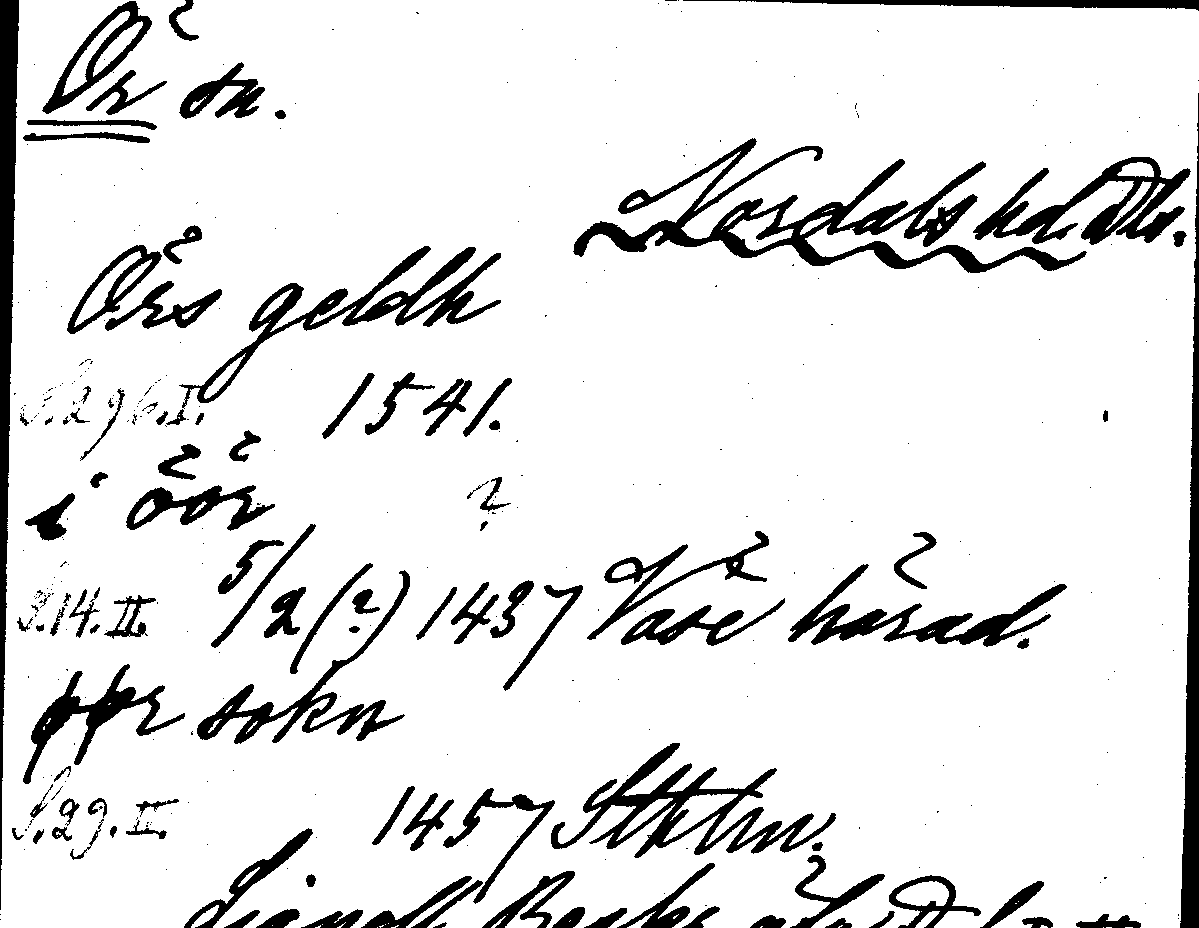 Ör sn.
Nordals hd. Dls.
Örs geldh
S. 296. I. 1541.
i öör ?
S. 14. II. 5/2 (?) 1437 Väse härad.
øør sokn
S. 29. II. 1457 Sthlm.